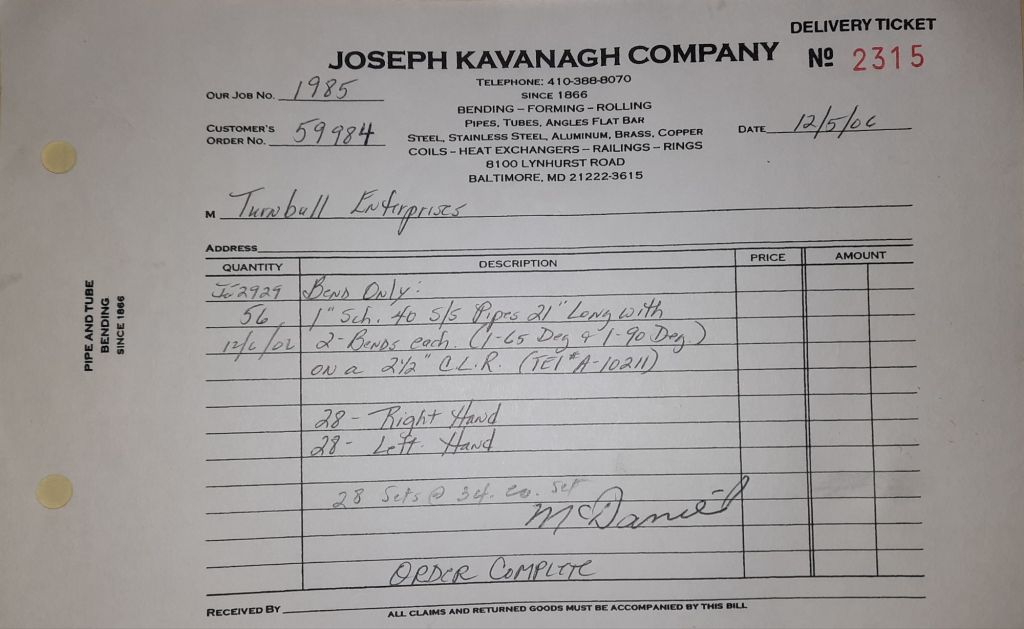 DELIVERY TICKET
JOSEPH KAVANAGH COMPANY
Nº 2315
TELEPHONE: 410-388-8070
OUR JOB NO. 1985
SINCE 1866
BENDING – FORMING – ROLLING
PIPES, TUBES, ANGLES FLAT BAR
CUSTOMER'S ORDER NO. 59984
STEEL, STAINLESS STEEL, ALUMINUM, BRASS, COPPER
DATE 12/5/06
COILS – HEAT EXCHANGERS – RAILINGS – RINGS
8100 LYNHURST ROAD
BALTIMORE, MD 21222-3615
M Turnball Enterprises
ADDRESS
QUANTITY DESCRIPTION PRICE AMOUNT
2929 Bend Only:
56 1" Sch. 40 S/S Pipes 21" Long with
12/6/06 2-Bends each. (1-65 Deg & 1-90 Deg.)
on a 2½" C.L.R. (TEI #A-10211)
28 - Right Hand
28 - Left Hand
28 Sets @ ea. set
McDaniel
ORDER COMPLETE
RECEIVED BY ALL CLAIMS AND RETURNED GOODS MUST BE ACCOMPANIED BY THIS BILL
PIPE AND TUBE
BENDING
SINCE 1866